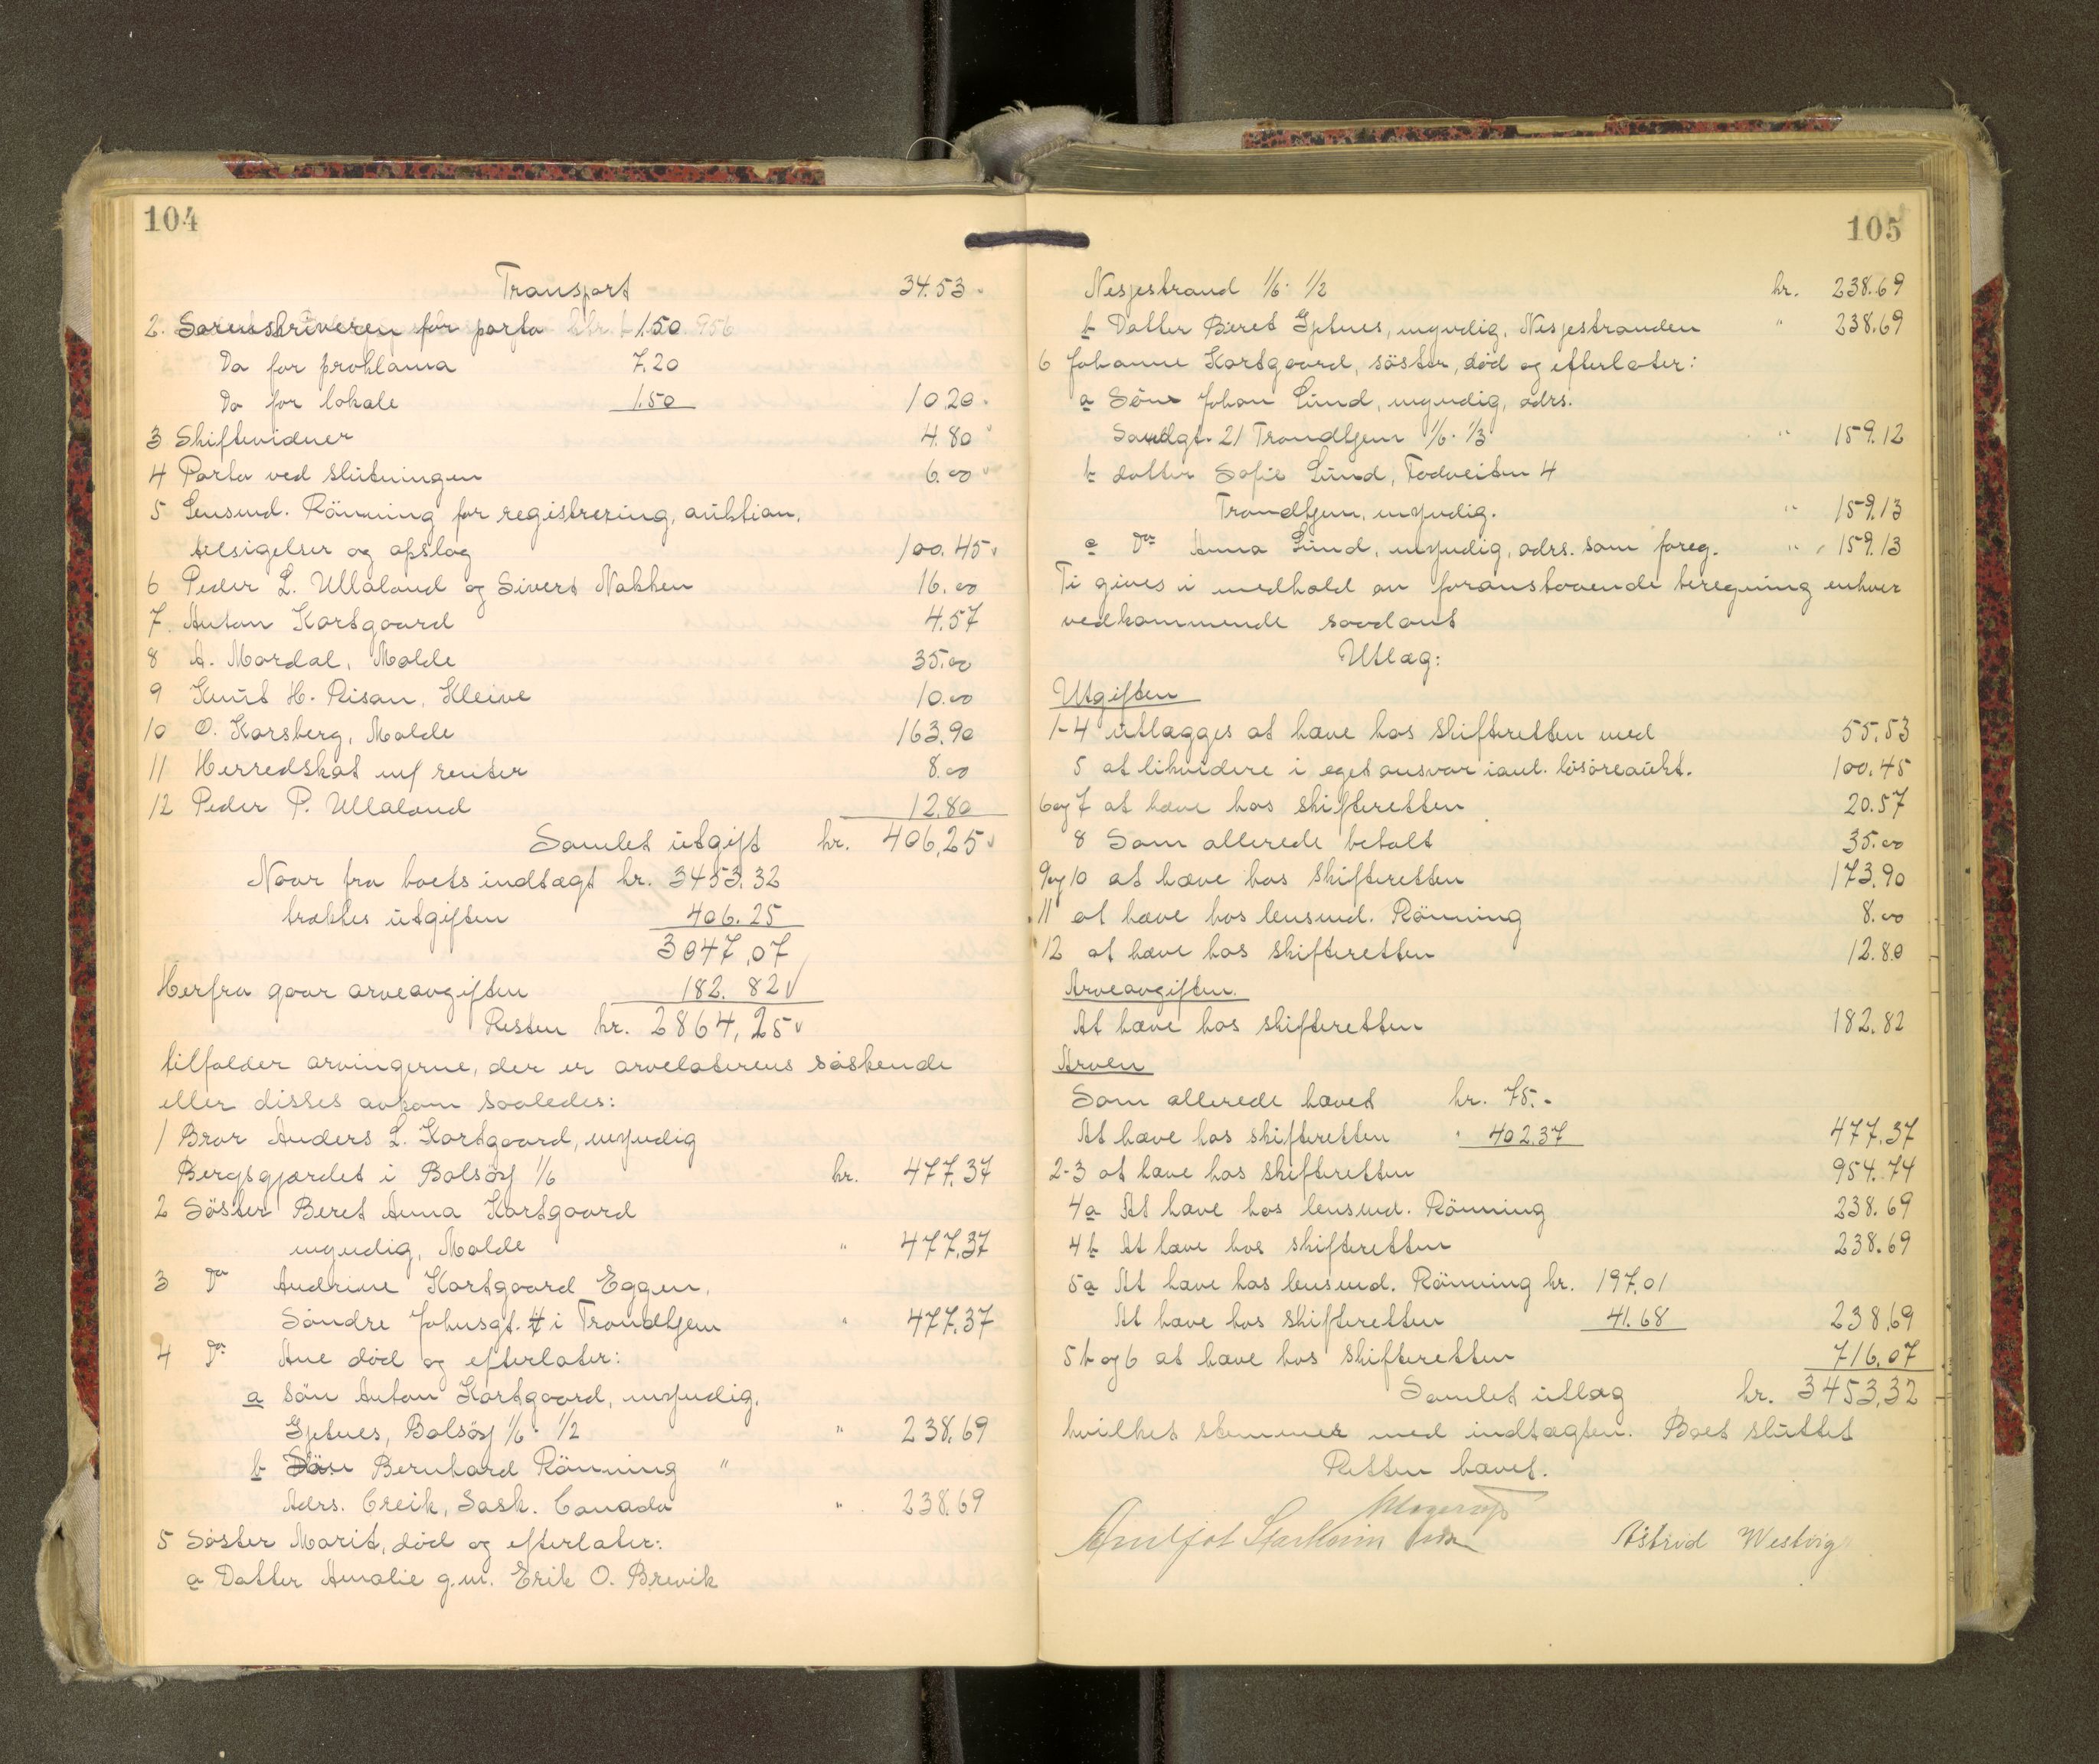 104
Transport 34.53
2. Sorenskriveren for porto 1.50
Do for proklama 7.20
Do for lokale 1.50 10.20
3 Skiftevidner 4.80
4 Porto ved slutningen 6.00
5 Lensmd. Rönning for registrering, auktion,
tilsigelser og opslag 100.45
6 Peder L. Ullaland og Sivert Nakken 16.00
7. Anton Kortgaard 4.57
8 A. Mordal, Molde 35.00
9 Knut H. Risan, Kleive 10.00
10 O. Korsberg, Molde 163.90
11 Herredskat m/ renter 8.00
12 Peder P. Ullaland 12.80
Samlet utgift kr. 406,25
Naar fra boets indtægt kr. 3453.32
trækkes utgiften 406.25
3047,07
Herfra gaar arveavgiften 182.82
Resten kr. 2864,25
tilfalder arvingerne, der er arvelaterens söskende
eller disses avkom saaledes:
1 Bror Anders L. Kortgaard, myndig
Bergsgjærdet i Bolsöy 1/6 kr. 477.37
2 Söster Beret Anna Kortgaard
myndig, Molde " 477,37
3 Do Andrine Kortgaard Eggen,
Söndre Johnsgt. 4 i Trondhjem " 477.37
4 Do Ane död og efterlater:
a sön Anton Kortgaard, myndig,
Gjetnes, Bolsöy 1/6 · 1/2 " 238.69
b Sön Bernhard Rönning "
Adrs. Creik, Sask. Canada " 238.69
5 Söster Marit, död og efterlater:
a Datter Amalie g.m. Erik O. Brevik
105
Nesjestrand 1/6 · 1/2 kr. 238.69
b Datter Beret Gjetnes, myndig, Nesjestranden " 238.69
6 Johanne Kortgaard, söster, död og efterlater:
a Sön Johan Lund, myndig, adrs.
Sandgt. 21 Trondhjem 1/6 · 1/3 " 159.12
b datter Sofie Lund, Todveiten 4
Trondhjem, myndig. " 159.13
c Do Anna Lund, myndig, adrs. som foreg. " 159.13
Ti gives i medhold av foranstaaende beregning enhver
vedkommende saadant
Utlæg:
Utgiften
1-4 utlægges at hæve hos skifteretten med 55.53
5 at likvidere i eget ansvar iaul. lösöreaukt. 100.45
6 og 7 at hæve hos skifteretten 20.57
8 Som allerede betalt 35.00
9 og 10 at hæve hos skifteretten 173.90
11 at hæve hos lensmd. Rönning 8.00
12 at hæve hos skifteretten 12.80
Arveavgiften.
At hæve hos skifteretten 182.82
Arven
Som allerede hævet kr. 75.-
At hæve hos skifteretten " 402.37 477.37
2-3 at hæve hos skifteretten 954.74
4a At hæve hos lensmd. Rönning 238.69
4b At hæve hos skifteretten 238.69
5a At hæve hos lensmd. Rönning kr. 197,01
At hæve hos skifteretten 41.68 238,69
5b og 6 at hæve hos skifteretten 716,07
Samlet utlæg kr. 3453,32
hvilket stemmer med indtægten. Boet sluttet
Retten hævet.
Astrid Westvig